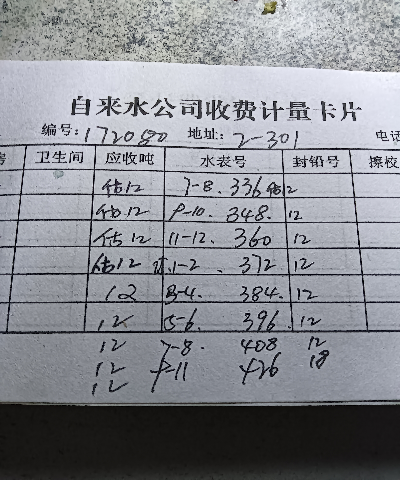 自来水公司收费计量卡片
编号: 172080 地址: 2-301 电话
卫生间 应收吨 水表号 封铅号 擦校
估12 7-8. 336 估12
估12 9-10. 348. 12
估12 11-12. 360 12
估12 1-2. 372 12
12 3-4. 384. 12
12 5-6. 396. 12
12 7-8. 408 12
12 9-11 426 18
12